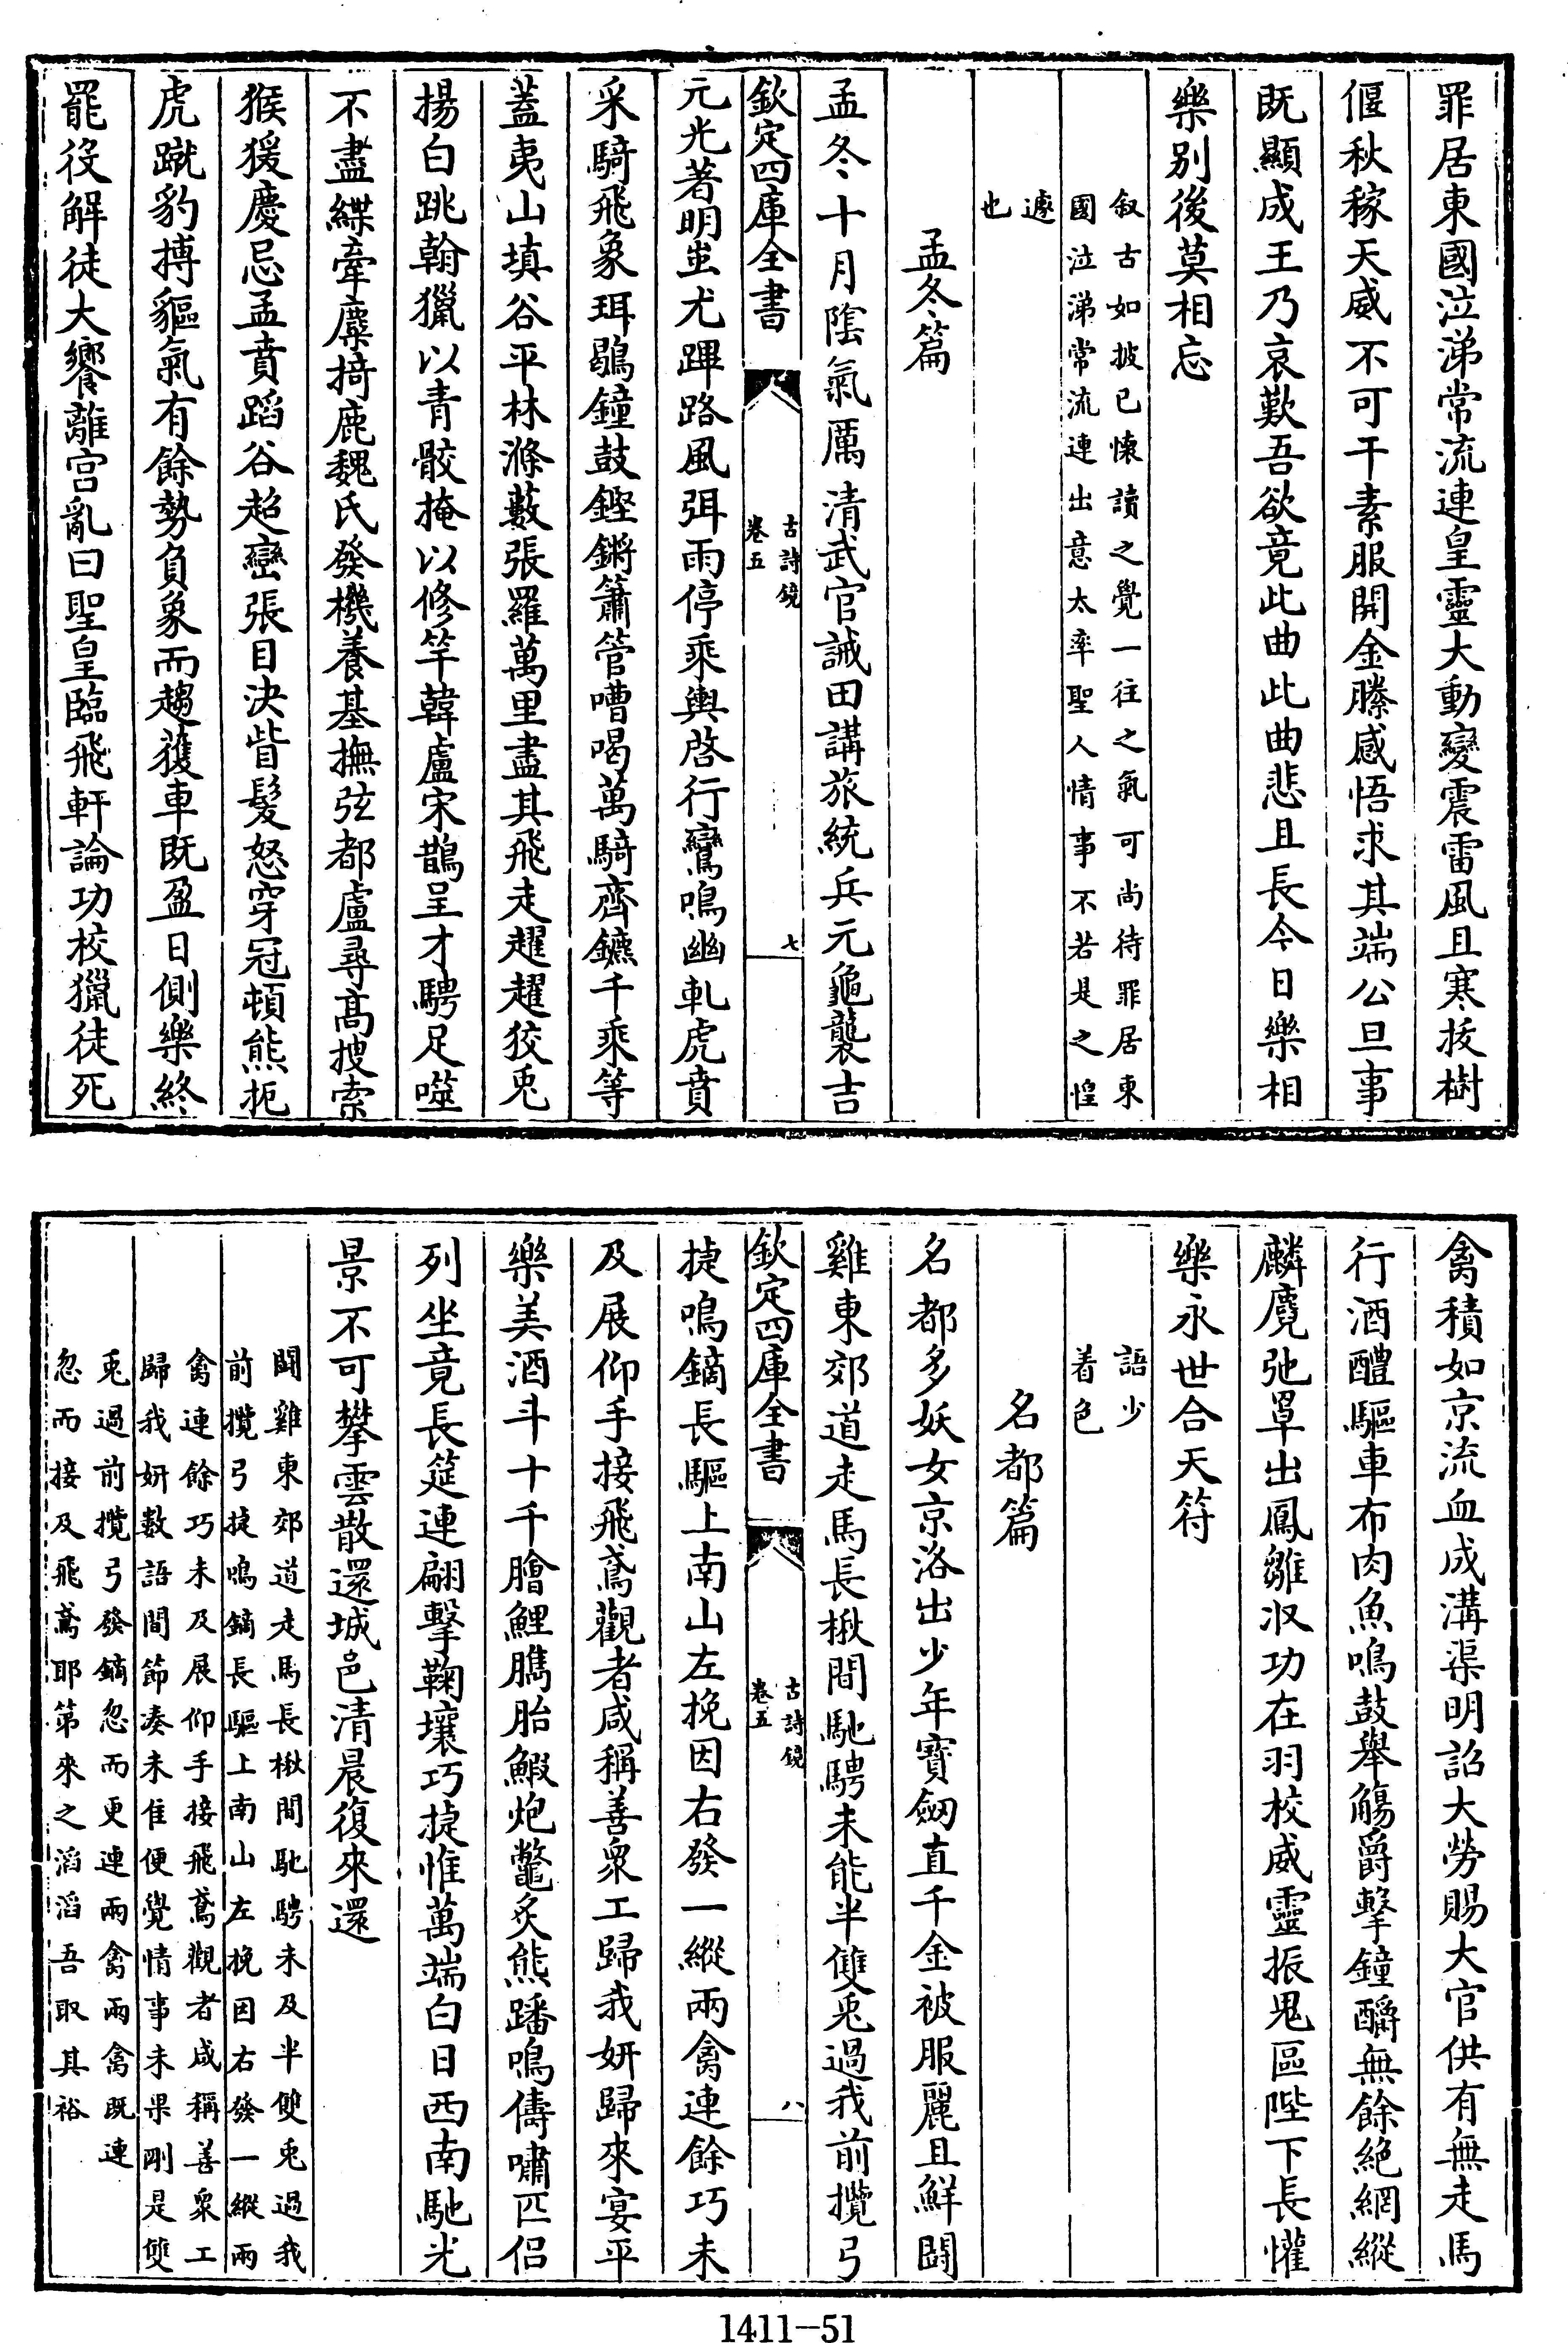 罪居東國泣涕常流連皇靈大動變震雷風且寒拔樹
偃秋稼天威不可干素服開金縢感悟求其端公旦事
既顯成王乃哀歎吾欲竟此曲此曲悲且長今日樂相
樂别後莫相忘
叙古如披已懐讀之覺一往之氣可尚待罪居東
國泣涕常流連出意太率聖人情事不若是之惶
遽
也
孟冬篇
孟冬十月隂氣厲清武官誡田講旅統兵元龜襲吉
欽定四庫全書
古詩鏡
卷五
七
元光著明蚩尤蹕路風弭雨停乘輿啓行鸞鳴幽軋虎賁
采騎飛象珥鶡鐘鼓鏗鏘簫管嘈喝萬騎齊鑣千乘等
葢夷山填谷平林滌藪張羅萬里盡其飛走趯趯狡兎
揚白跳翰獵以青骹掩以修竿韓盧宋鵲呈才騁足噬
不盡緤牽麋掎鹿魏氏發機養基撫弦都盧尋髙搜索
猴猨慶忌孟賁蹈谷超巒張目決眥髮怒穿冠頓熊扼
虎蹴豹搏貙氣有餘勢負象而趨獲車既盈日側樂終
罷役解徒大饗離宫亂曰聖皇臨飛軒論功校獵徒死
禽積如京流血成溝渠明詔大勞賜大官供有無走馬
行酒醴驅車布肉魚鳴鼓舉觴爵擊鐘釂無餘絶網縱
麟麑弛罩出鳳雛收功在羽校威靈振鬼區陛下長懽
樂永世合天符
語少
着色
名都篇
名都多妖女京洛出少年寶劒直千金被服麗且鮮鬬
雞東郊道走馬長楸間馳騁未能半雙兎過我前攬弓
欽定四庫全書
古詩鏡
卷五
八
捷鳴鏑長驅上南山左挽因右發一縱兩禽連餘巧未
及展仰手接飛鳶觀者咸稱善衆工歸我妍歸來宴平
樂美酒斗十千膾鯉臇胎鰕炮鼈炙熊蹯鳴儔嘯匹侣
列坐竟長筵連翩擊鞠壤巧捷惟萬端白日西南馳光
景不可攀雲散還城邑清晨復來還
鬬雞東郊道走馬長楸間馳騁未及半雙兎過我
前攬弓捷鳴鏑長驅上南山左挽因右發一縱兩
禽連餘巧未及展仰手接飛鳶觀者咸稱善衆工
歸我妍數語間節奏未隹便覺情事未果剛是雙
兎過前攬弓發鏑忽而更連兩禽兩禽既連
忽而接及飛鳶耶第來之滔滔吾取其裕
1411-51